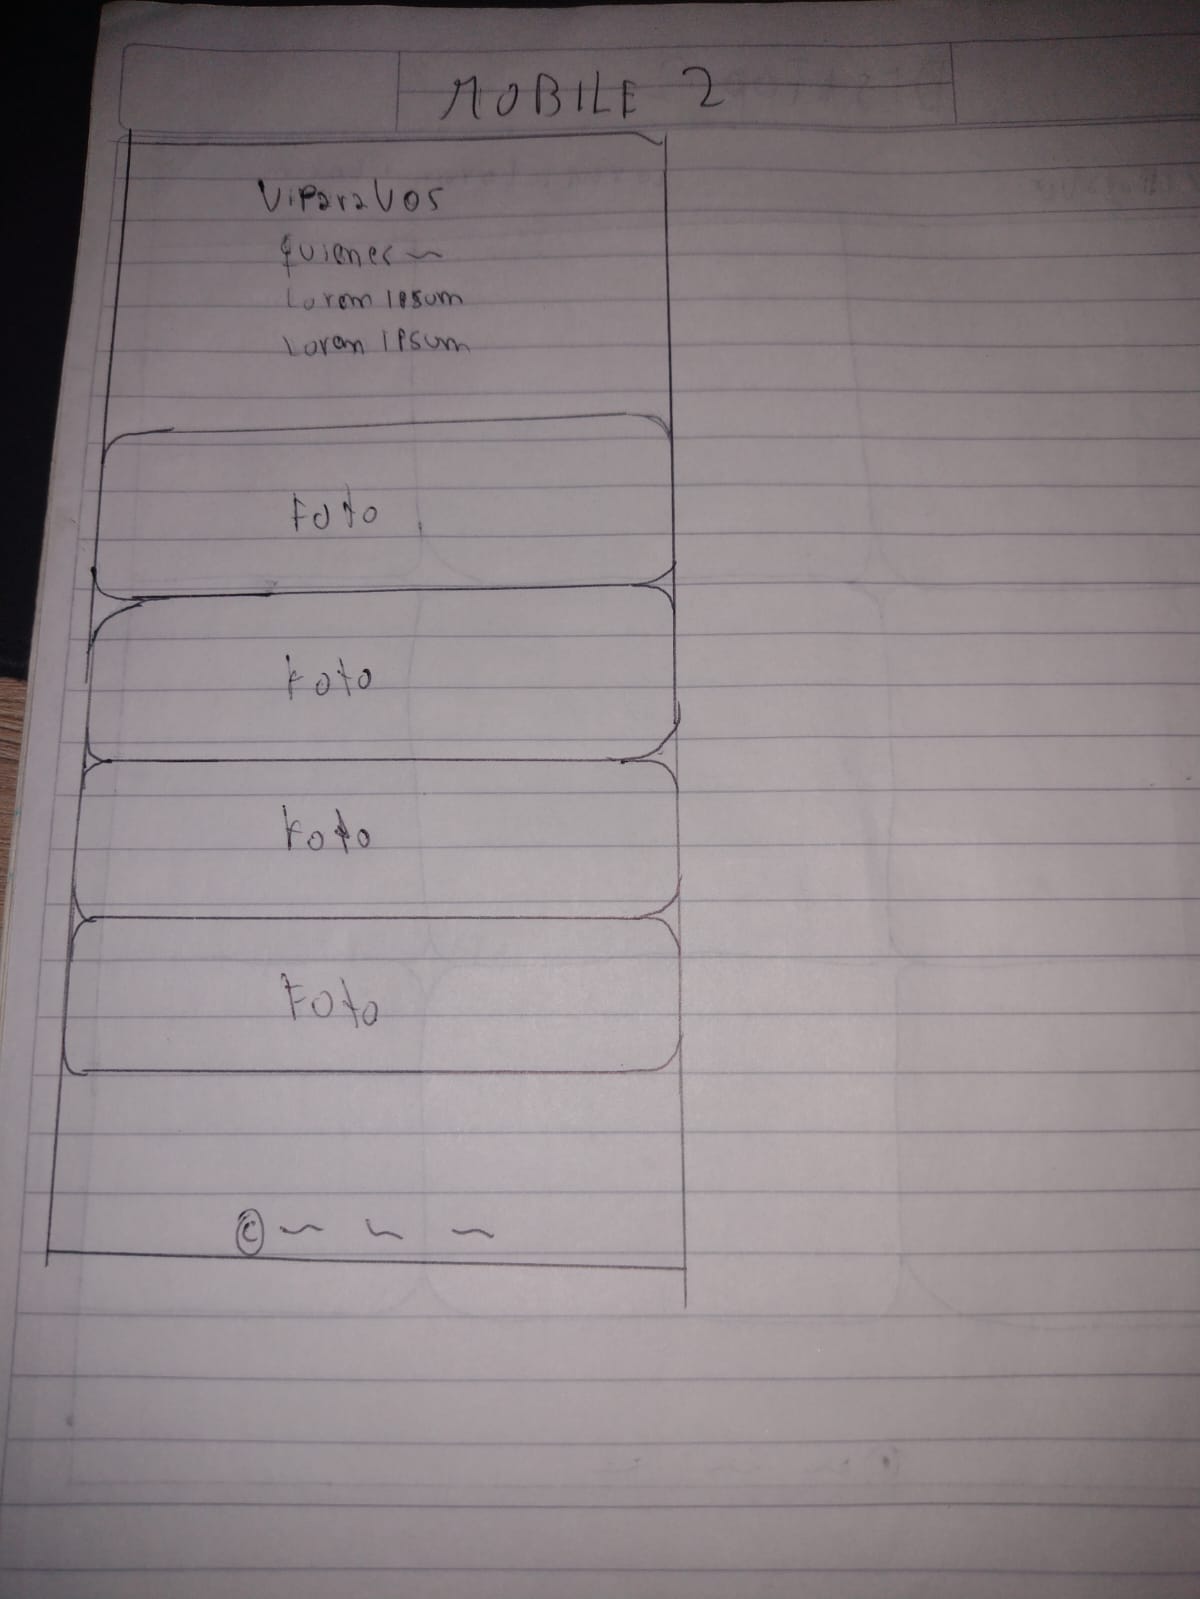 MOBILE 2
ViParaVos
quienes
Lorem Ipsum
Lorem Ipsum
Foto
Foto
Foto
Foto
©